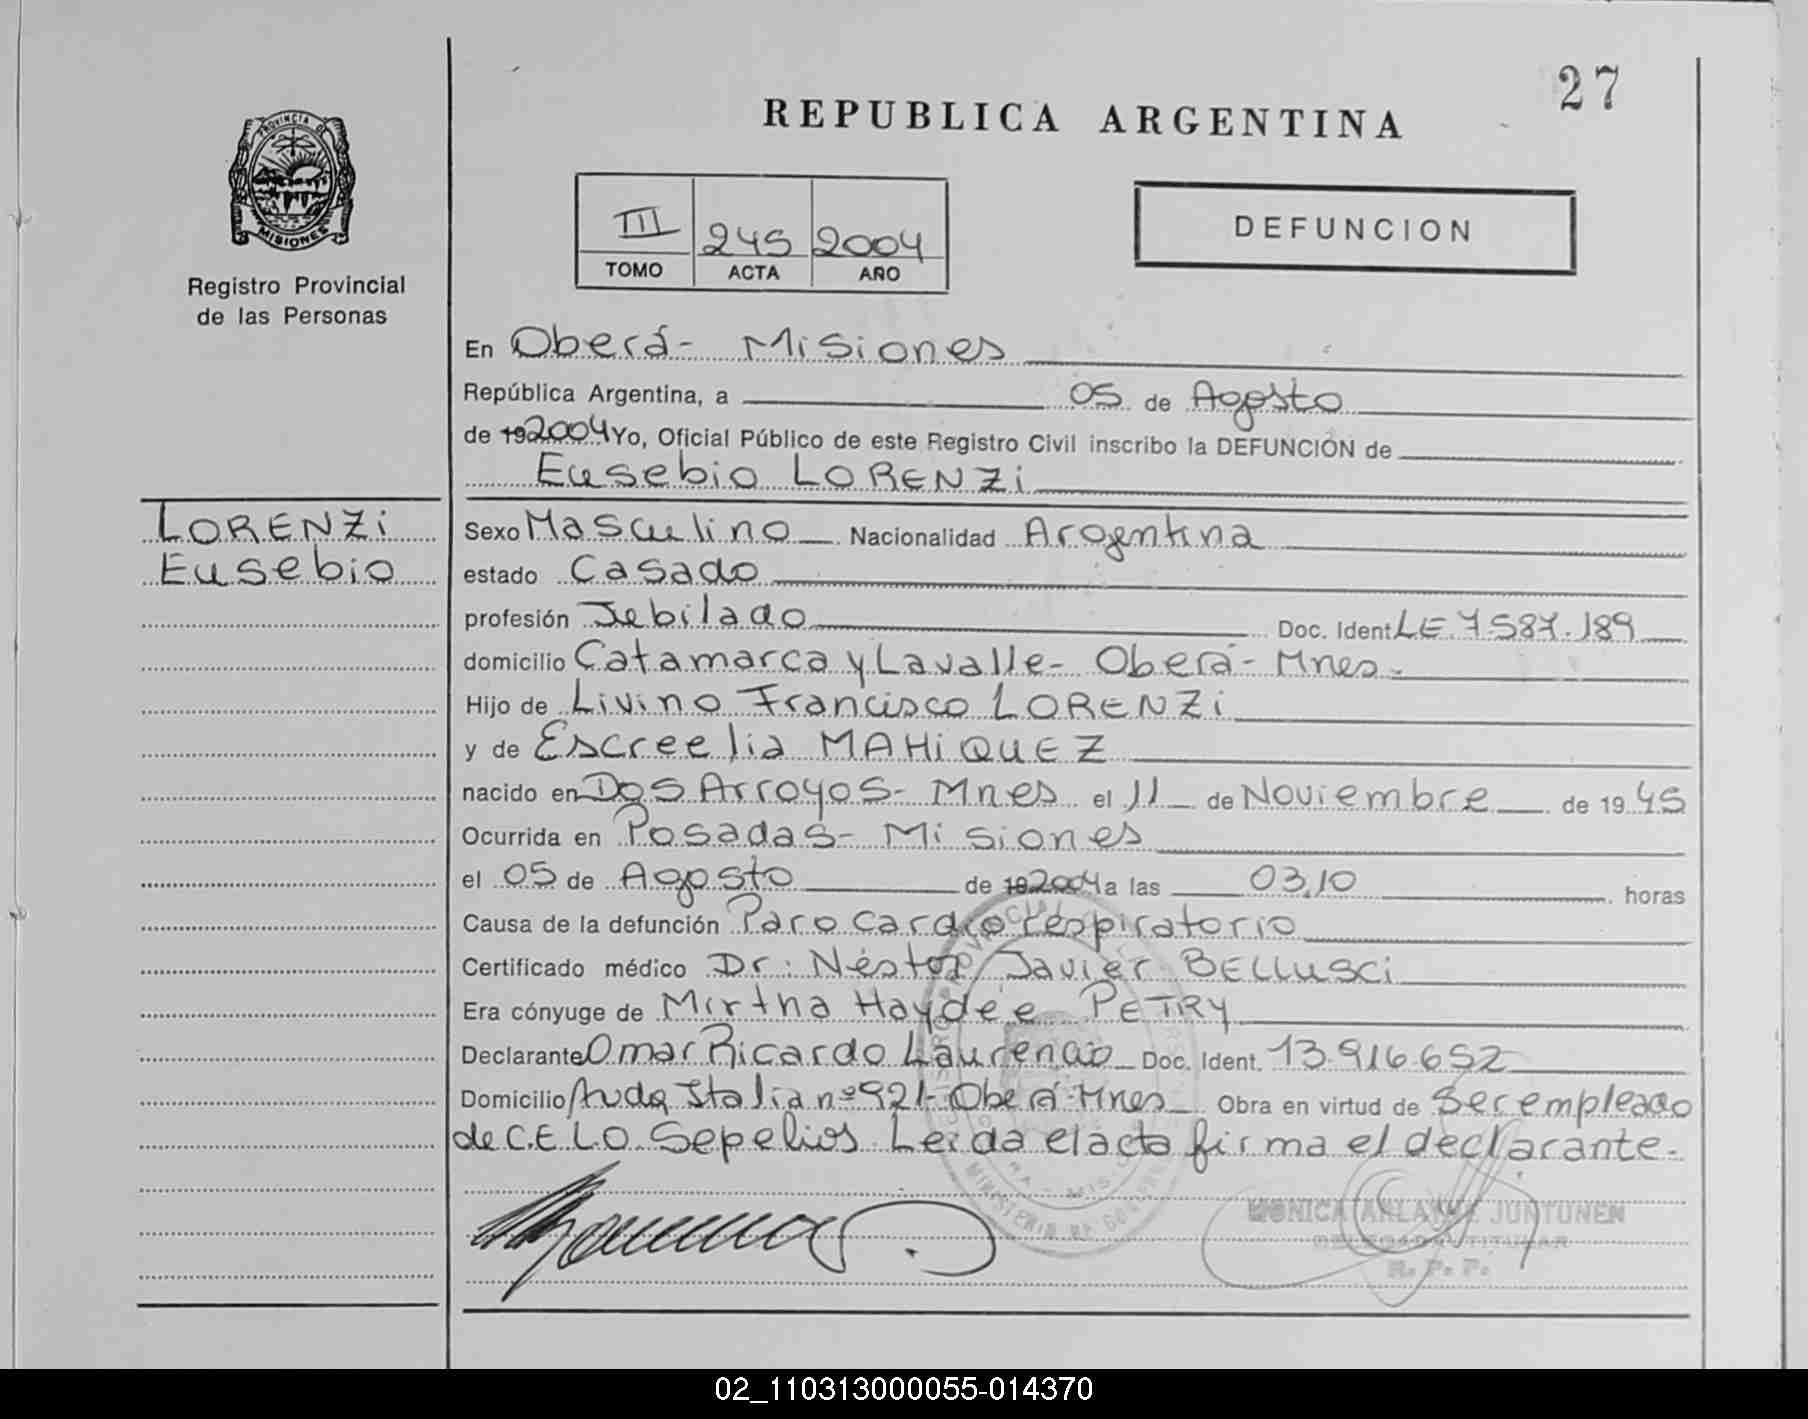 27
REPUBLICA ARGENTINA
PROVINCIA DE
MISIONES
Registro Provincial
de las Personas
III 245 2004
TOMO ACTA AÑO
DEFUNCION
En Oberá- Misiones
República Argentina, a 05 de Agosto
de 192004 Yo, Oficial Público de este Registro Civil inscribo la DEFUNCIÓN de
Eusebio LORENZi
LORENZi
Eusebio
Sexo Masculino Nacionalidad Argentina
estado Casado
profesión Jubilado Doc. Ident. LE.7.587.189
domicilio Catamarca y Lavalle- Oberá- Mnes.
Hijo de Livino Francisco LORENZi
y de Escreelia MAHiQUEZ
nacido en Dos Arroyos- Mnes el 11 de Noviembre de 19 45
Ocurrida en Posadas- Misiones
el 05 de Agosto de 192004 a las 03,10 horas
Causa de la defunción Paro cardio respiratorio
Certificado médico Dr. Néstor Javier BELLUSCi
Era cónyuge de Mirtha Haydée PETRY
Declarante Omar Ricardo Laurencio Doc. Ident. 13.916.652
Domicilio Avda Italia nº 921- Oberá-Mnes Obra en virtud de Ser empleado
de C.E.L.O. Sepelios. Leida el acta firma el declarante.
MONICA ARLAYNE JUNTUNEN
DELEGADA TITULAR
R. P. P.
02_110313000055-014370